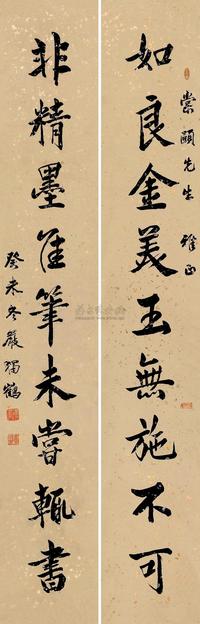 棠頤先生 雅正
如良金美玉無施不可
非精墨佳筆未嘗輒書
癸未冬嚴獨鶴